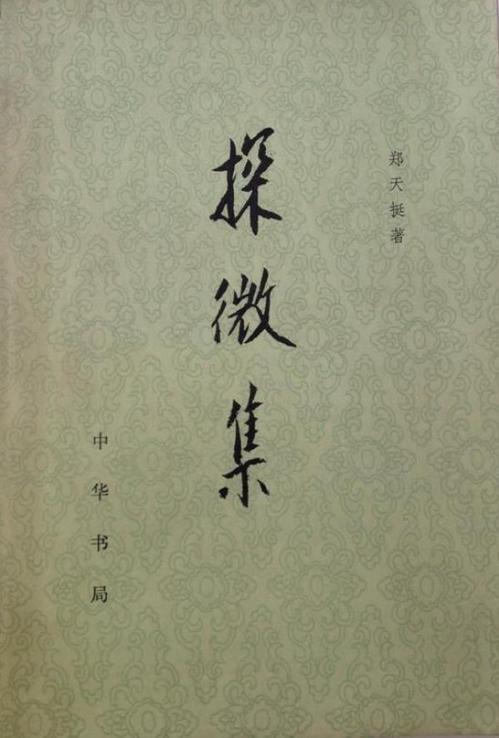 郑天挺著
探微集
中华书局